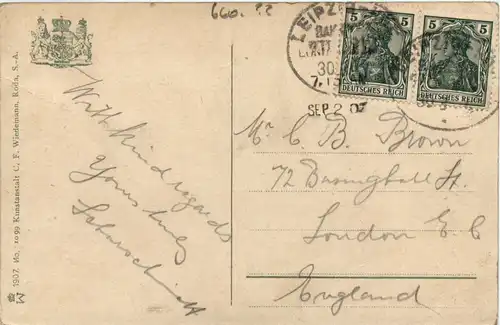 660.
LEIPZIG
BAH
30.
7.
SEP 2 07
5 5
DEUTSCHES REICH
5 5
DEUTSCHES REICH
With kind regards
Yours truly
Mr. C. B. Brown
72 Basinghall St.
London E. C.
England
M 1907. No. 1099 Kunstanstalt C. F. Wiedemann, Roda, S.-A.